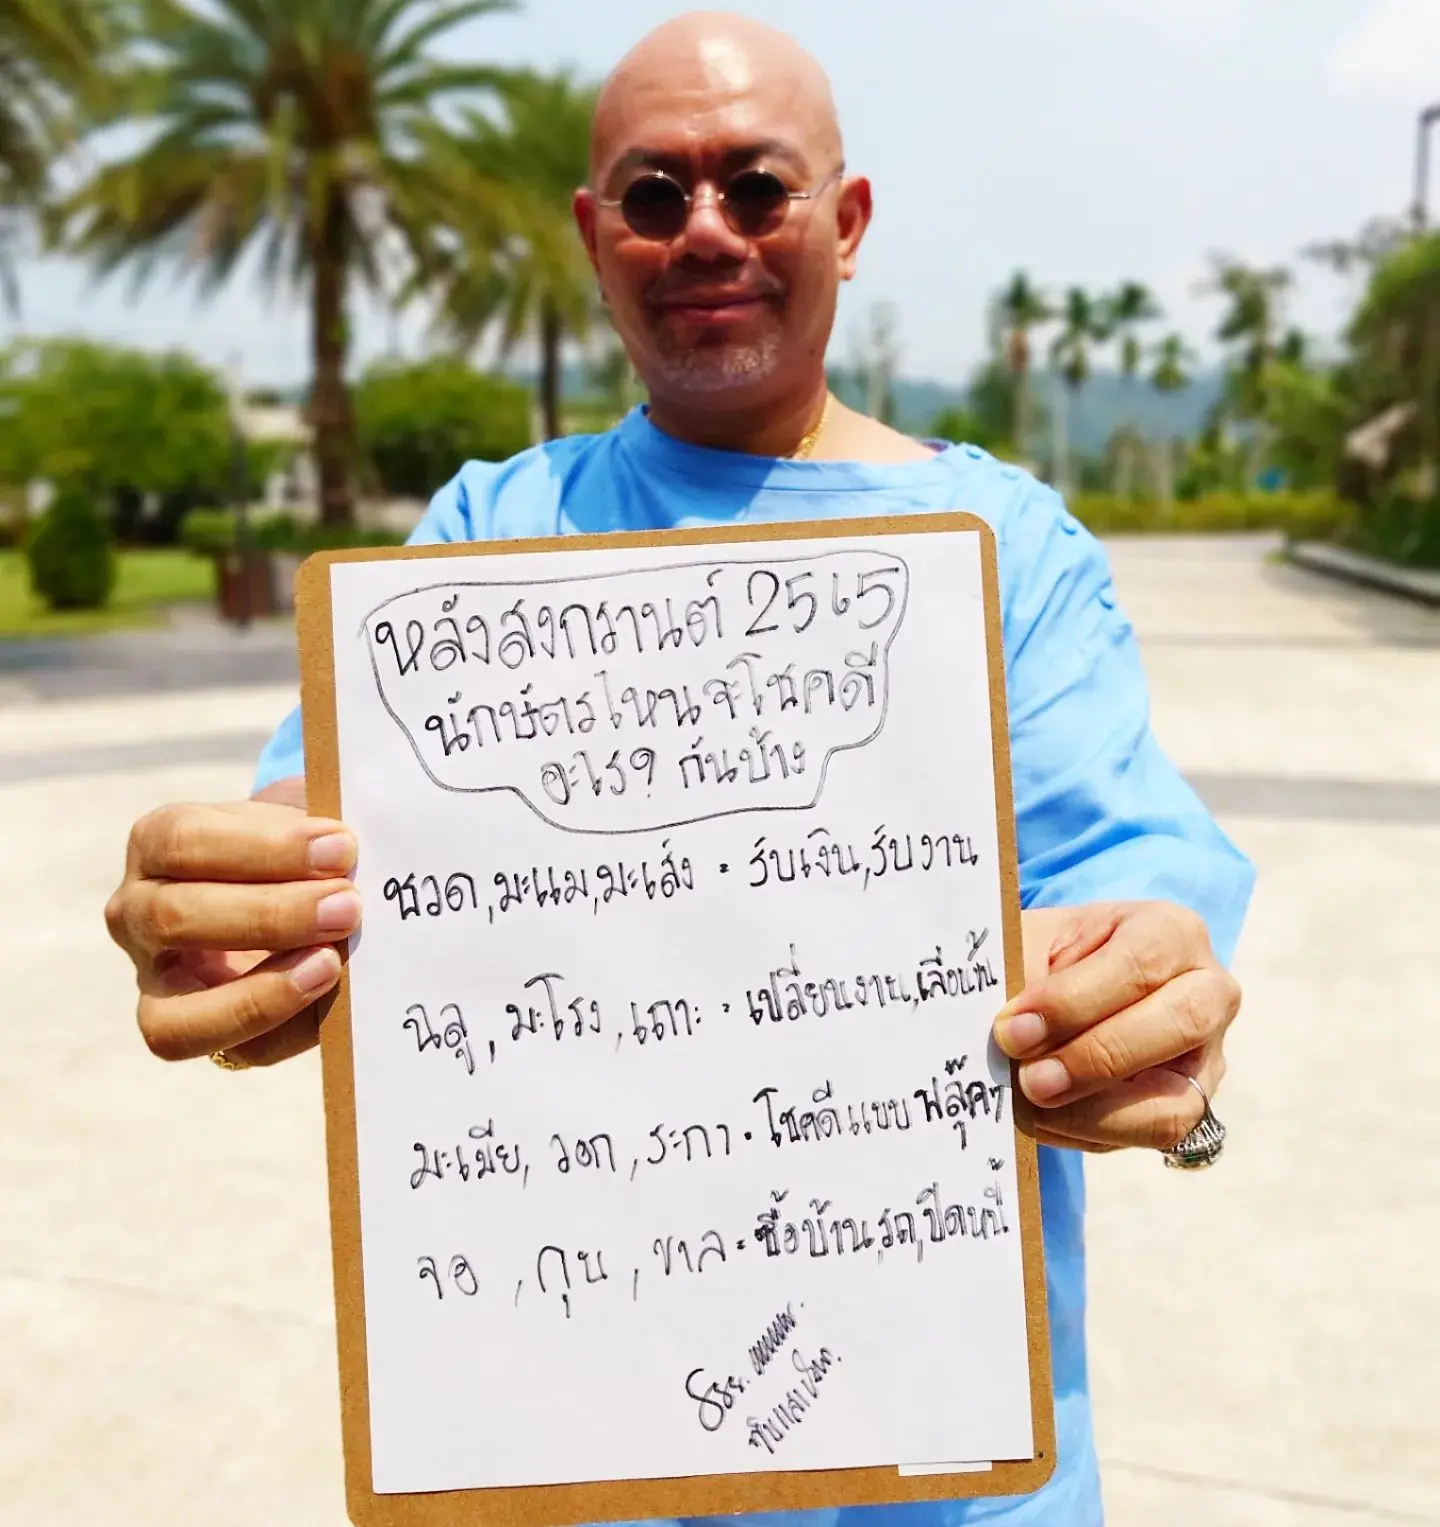 หลังสงกรานต์ 2565
นักษัตรไหนจะโชคดี
อะไร? กันบ้าง
ชวด, มะแม, มะเส็ง = รับเงิน, รับงาน
ฉลู, มะโรง, เถาะ = เปลี่ยนงาน, เลื่อนขั้น
มะเมีย, วอก, ระกา = โชคดีแบบฟลุ๊คๆ
จอ, กุน, ขาล = ซื้อบ้าน, รถ, ปิดหนี้